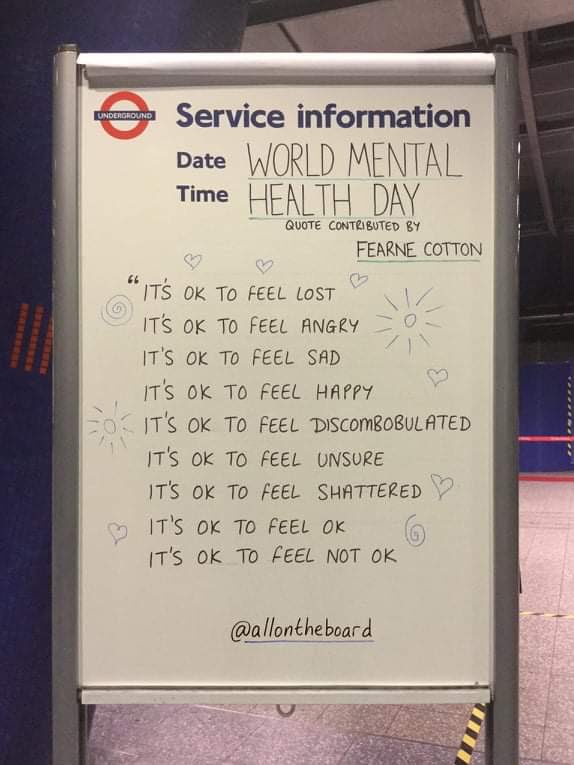 UNDERGROUND
Service information
Date WORLD MENTAL
Time HEALTH DAY
QUOTE CONTRIBUTED BY
FEARNE COTTON
“IT'S OK TO FEEL LOST
IT'S OK TO FEEL ANGRY
IT'S OK TO FEEL SAD
IT'S OK TO FEEL HAPPY
IT'S OK TO FEEL DISCOMBOBULATED
IT'S OK TO FEEL UNSURE
IT'S OK TO FEEL SHATTERED
IT'S OK TO FEEL OK
IT'S OK TO FEEL NOT OK
@allontheboard